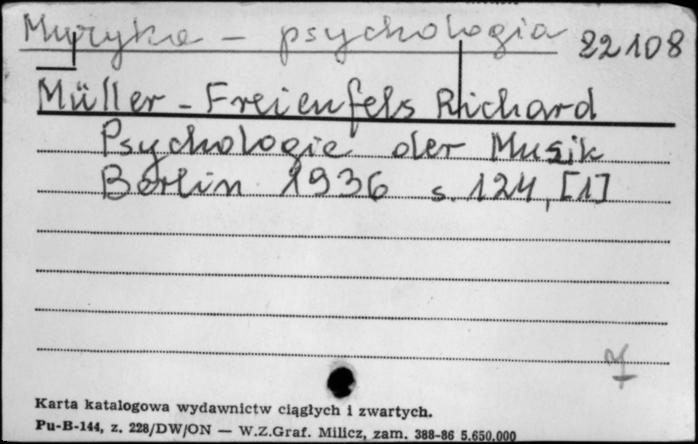 Muzyka - psychologia 22108
Müller - Freienfels Richard
Psychologie der Musik
Berlin 1936 s. 124, [1]
Karta katalogowa wydawnictw ciągłych i zwartych.
Pu-B-144, z. 228/DW/ON — W.Z.Graf. Milicz, zam. 388-86 5.650.000